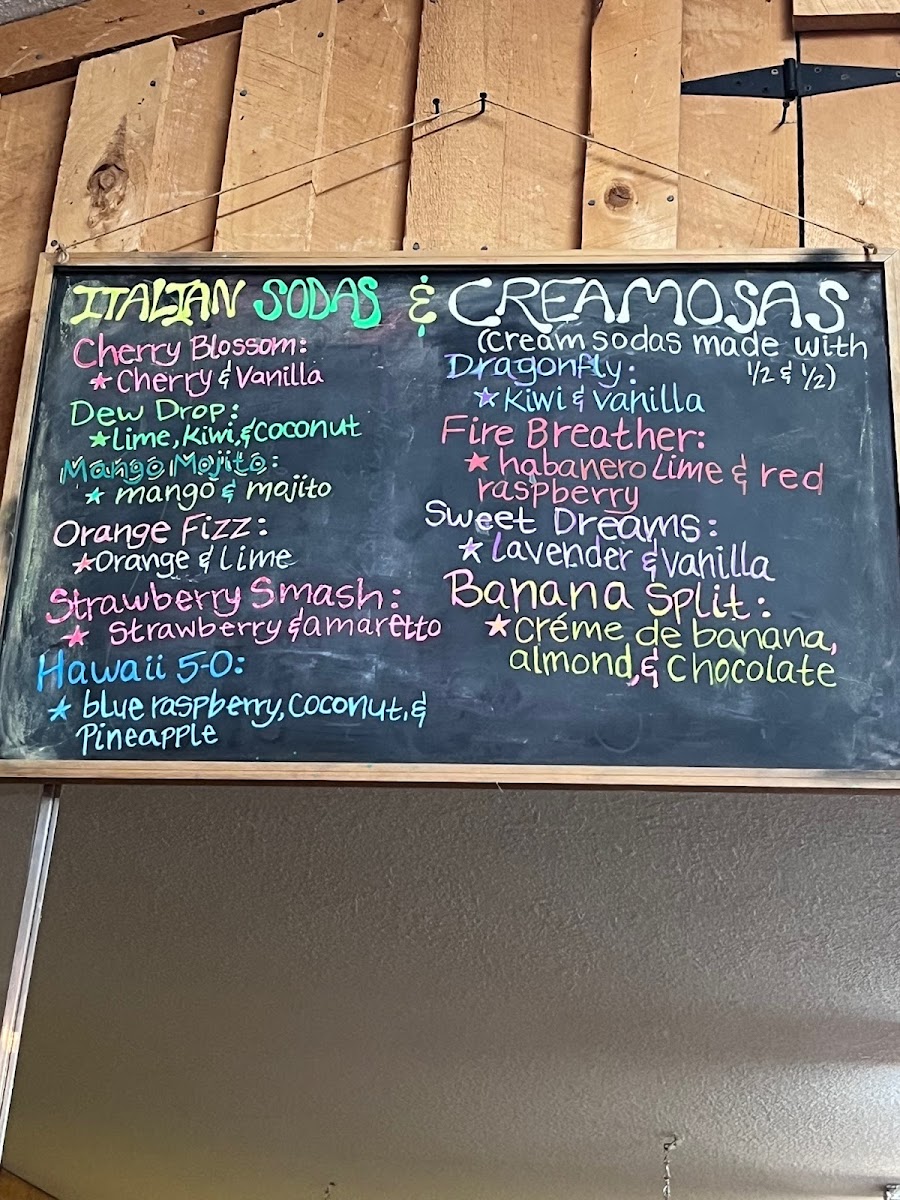 ITALIAN SODAS & CREAMOSAS
Cherry Blossom:
★ Cherry & Vanilla
Dew Drop:
★ lime, kiwi, & coconut
Mango Mojito:
★ mango & mojito
Orange Fizz:
★ Orange & Lime
Strawberry Smash:
★ Strawberry & amaretto
Hawaii 5-0:
★ blue raspberry, Coconut, &
Pineapple
(cream sodas made with
1/2 & 1/2)
Dragonfly:
★ Kiwi & vanilla
Fire Breather:
★ habanero Lime & red
raspberry
Sweet Dreams:
★ lavender & vanilla
Banana Split:
★ créme de banana,
almond, & Chocolate